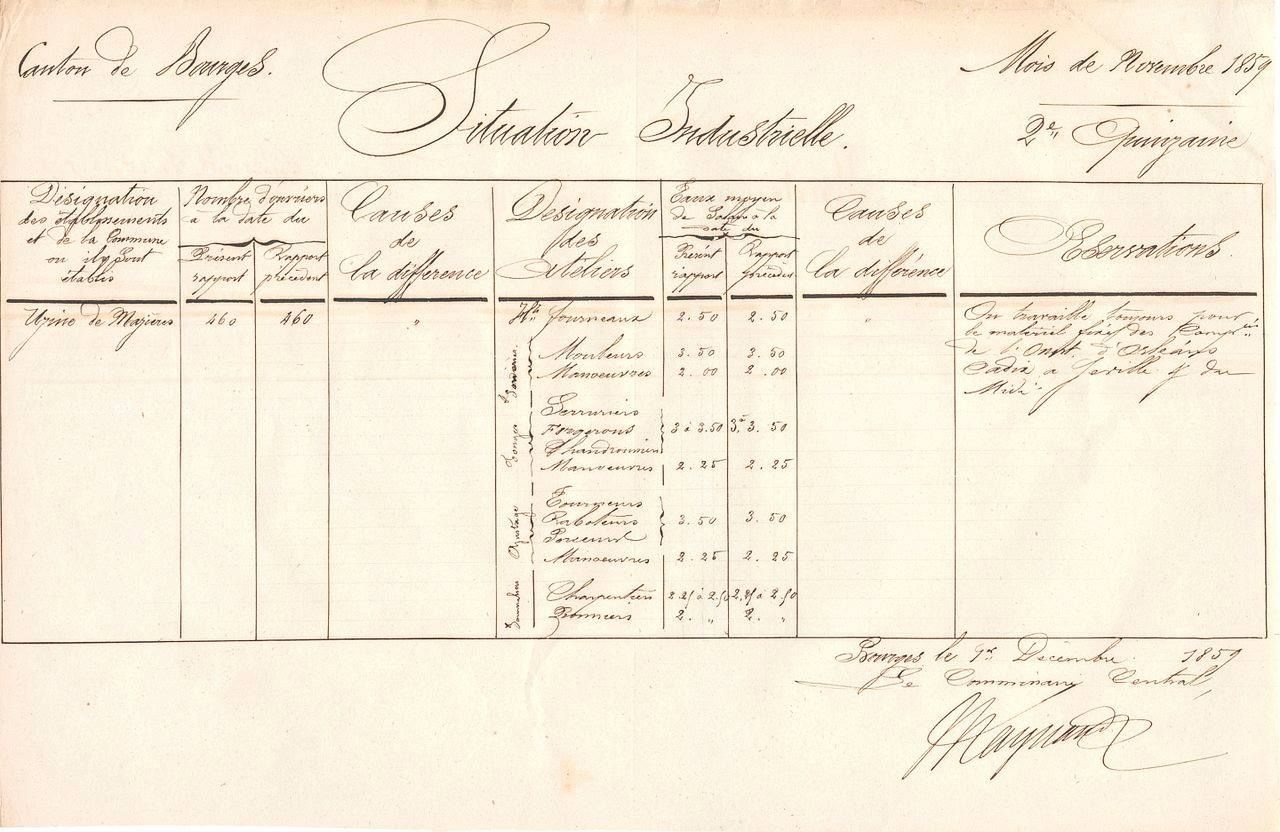 Canton de Bourges.
Mois de Novembre 1859
Situation Industrielle.
2e Quinzaine
Désignation
des établissements
et de la Commune
ou ils sont
établis
Nombre d'ouvriers
à la date du
Présent
rapport
Rapport
précédent
Causes
de
la différence
Désignation
des
Ateliers
Taux moyen
de Salaire à la
date du
Présent
rapport
Rapport
précédent
Causes
de
la différence
Observations.
Usine de Mazières
460
460
"
Hts fourneaux
2.50
2.50
"
On travaille toujours pour
le matériel fixe des Compies
de l'Ouest. d'Orléans
Cadix a Seville & du
Midi
Mouleurs
3.50
3.50
Manoeuvres
2.00
2.00
Forges
Serruriers
Forgerons
3 à 3.50
3 à 3.50
Chaudronniers
Manoeuvres
2.25
2.25
Ajustage
Tourneurs
Raboteurs
3.50
3.50
Perceurs
Manoeuvres
2.25
2.25
Charpentiers
2.25 à 2.50
2.25 à 2.50
2. "
2. "
Bourges le 1er Décembre 1859
Le Commissaire Central,